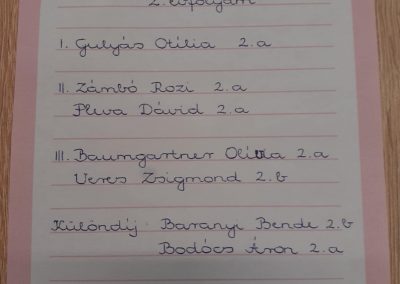 2. évfolyam
I. Gulyás Otília 2.a
II. Zámbó Rozi 2.a
Pleva Dávid 2.a
III. Baumgartner Olívia 2.a
Veres Zsigmond 2.b
Különdíj Baranyi Bende 2.b
Bodócs Áron 2.a